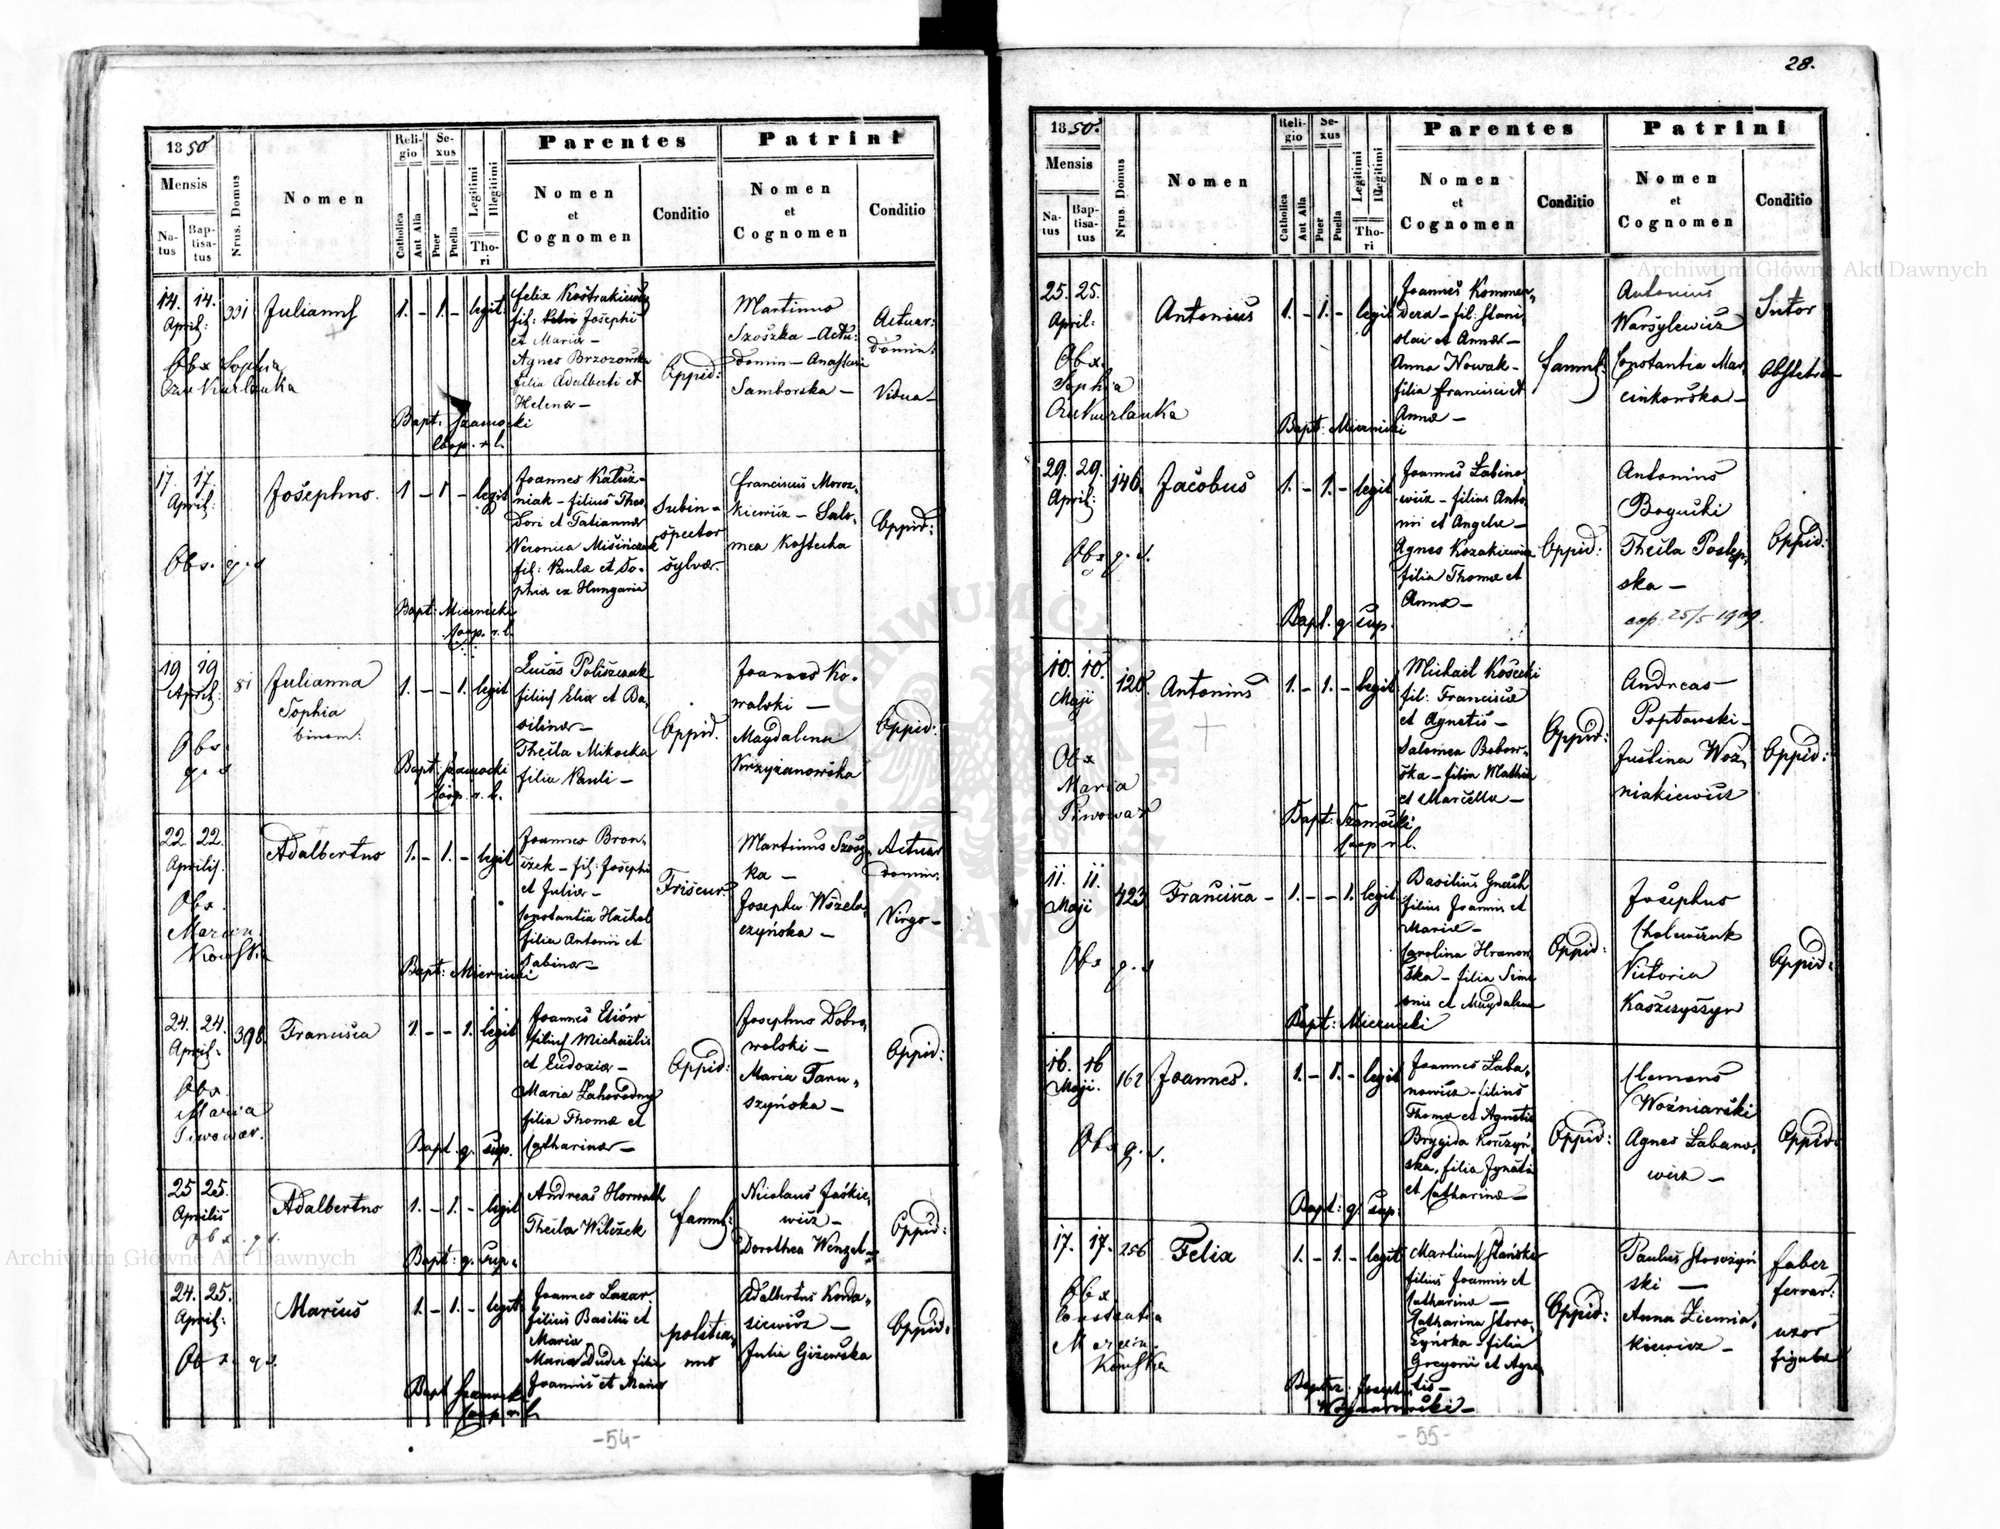 28.
1850
Mensis
Natus
Baptisatus
Nrus. Domus
Nomen
Religio
Catholica
Aut Alia
Sexus
Puer
Puella
Legitimi
Illegitimi
Thori
Parentes
Nomen
et
Cognomen
Conditio
Patrini
Nomen
et
Cognomen
Conditio
14. 14.
April:
Obs Sophia
Julianus
1. – 1. – legit.
fil: Josephi
et Mariæ –
Agnes Brzozowska
filia Adalberti et
Helenæ –
Oppid:
Martinus
Szoszka – Actu:
domin – Anastasia
Samborska –
Actuar:
domin:
Vidua –
Bapt. Szamocki
Coop. r. l.
17. 17.
April:
Obs. q. s
Josephus.
1 – 1 – legit
Joannes Kaluz-
niak – filius Theo
dori et Tatiannæ
Veronica
fil: Pauli et So-
phiæ ex Hungaria
Subin-
spector
sylvæ.
Franciscus Moroz-
kiewicz – Salo-
mea Kostecka
Oppid:
Bapt: Miernicki
Coop. r. l.
19 19
April:
81
Obs.
q. s
Julianna
Sophia
binom:
1. – – 1. legit
Lucas Poliszczuk
filius Eliæ et Ba-
silinæ –
Thecla Mikocka
filia Pauli –
Oppid.
Joannes Ko-
walski –
Magdalena
Krzyżanowska
Oppid:
Bapt: Szamocki
Coop. r. l.
22 22.
Aprilis.
Obs.
Adalbertus
1. – 1. – legit
Joannes Bron-
iczek – fil: Josephi
et Juliæ –
Constantia Hachol
filia Antonii et
Sabinæ –
Friseur.
Martinus Szosz-
ka –
Josepha
Actuar
domin:
Virgo –
Bapt: Miernicki
24. 24.
April:
398.
Obs.
Maria
Piwowar.
Francisca
1. – – 1. legit
Joannes
filius Michaelis
et Eudoxiæ –
Maria Zahorodny
filia Thomæ et
Catharinæ –
Oppid:
Josephus Dobro-
wolski –
Maria Taru-
szyńska –
Oppid:
Bapt. q. sup.
25 25.
Aprilis
Obs. q. s.
Adalbertus
1. – 1. – legit
Andreas Horwath
Thecla Wilczek
famul:
Nicolaus Jaskie-
wicz –
Dorothea Wenzel –
Oppid:
Bapt: q. sup.
24. 25.
April:
Obs. q. s.
Marcus
1. – 1. – legit:
Joannes Lazar
filius Basilii et
Maria
Maria Duder filia
Joannis et Mariæ
Adalbertus Konda-
siewicz –
Julia Giżewska
Oppid:
Bapt Szamocki
Coop r. l.
-54-
1850.
Mensis
Natus
Baptisatus
Nrus. Domus
Nomen
Religio
Catholica
Aut Alia
Sexus
Puer
Puella
Legitimi
Illegitimi
Thori
Parentes
Nomen
et
Cognomen
Conditio
Patrini
Nomen
et
Cognomen
Conditio
25. 25.
April:
Obs.
Sophia
Antonius
1. – 1. – legit
Joannes Kommen-
dera – fil: Stani-
slai et Annæ –
Anna Nowak –
filia Francisci et
Annæ –
famul:
Antonius
Warsylewicz
Constantia Mar-
cinkowska –
Sutor
Obstetrix
Bapt: Miernicki
29. 29.
April:
146.
Obs q. s.
Jacobus
1. – 1. – legit
Joannes Łabino-
wicz – filius Anto-
nii et Angelæ –
Agnes Kozakiewicz
filia Thomæ et
Annæ –
Oppid:
Antonius
Bogucki
Thecla
ska –
cop. 25/5 1909.
Oppid:
Bapt. q. sup.
10. 10.
Maji
120.
Obs
Maria
Piwowar
Antonius
1. – 1. – legit
Michael Kosecki
fil: Francisci
et Agnetis –
Salomea Bobow-
ska – filia Mathiæ
et Marcellæ –
Oppid:
Andreas
Popławski –
Justina Woź-
niakiewicz
Oppid:
Bapt: Szamocki
Coop r. l.
11. 11.
Maji
423
Obs q. s
Francisca –
1. – – 1. legit
Basilius
filius Joannis et
Mariæ –
Carolina Hranow-
ska – filia Sime-
onis et Magdalenæ
Oppid:
Josephus
Cholewczuk
Victoria
Kaszczyszyn
Oppid:
Bapt: Miernicki
16. 16
Maji.
162
Obs q. s.
Joannes.
1. – 1. – legit
Joannes Laba-
nowicz – filius
Thomæ et Agnetis
Brygida Korczyń-
ska, filia Ignatii
et Catharinæ –
Oppid:
Clemens
Woźniarski
Agnes Łabano-
wicz –
Oppid:
Bapt: q. sup:
17. 17.
256
Obs
Constantia
Felix
1. – 1. – legit
filius Joannis et
Catharinæ –
Catharina
filia
Gregorii et Agne-
tis –
Oppid:
Paulus
ski –
Anna Ziemia-
kiewicz –
faber
ferrar:
uxor
figuli
Baptiz: Josephus
-55-
Archiwum Główne Akt Dawnych
Archiwum Główne Akt Dawnych